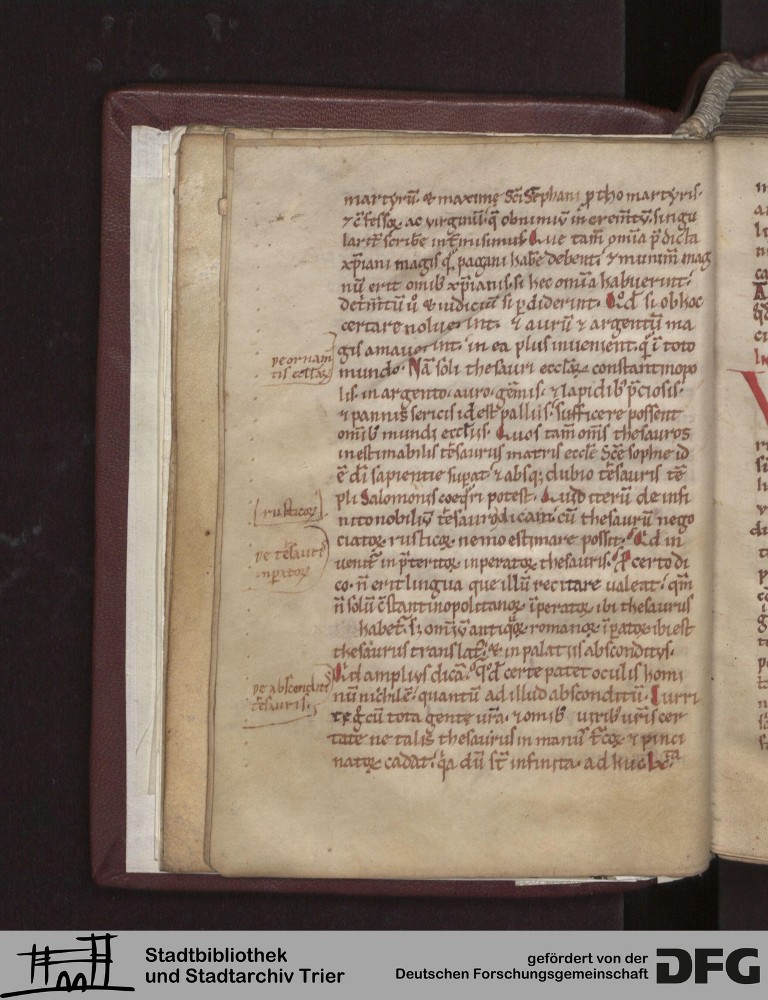 martyrũ. & maxime sc̃i Stephani ꝑthomartyris.
⁊ c̃fessoꝝ. ac virginũ. q̃ ob nimiũ in eremt̃ẽ singu
larit̃ scribe int̃misimus. Que tam̃ omĩa p̃dicta
xp̃iani magis q̃ pagani habe debent. ⁊ munim̃ mag
nũ erit omib; xp̃ianis. si hec omĩa habuerint.
detrim̃tũ ũ & iudiciũ si ꝑdiderint. Qᵒd si ob hoc
certare noluerint. ⁊ aurũ ⁊ argentũ ma
gis amauerint. in ea plus inuenient. q̃ ĩ toto
de ornam
tis ecc̃laꝝ
mundo. Nã soli thesauri ecclaꝝ constantinopo
lis. in argento. auro. gẽmis. ⁊ lapidib; p̃ciosis.
⁊ pannis sericis id est palliis. sufficere possent
omĩb; mundi eccl̃iis. Quos tam̃ om̃s thesauros
inestimabilis t̃esaurus matris eccl̃e sc̃e sophie id
ẽ dĩ sapientie suꝑat. ⁊ absq; dubio t̃esauris tẽ
pli Salomonis coeq̃ri potest. Quid iterũ de infi
rusticoꝝ
nito nobiliũ t̃esauro dicam. cũ thesaurũ nego
ciatoꝝ rusticoꝝ nemo estimare possit. Qid in
de t̃esauris
inꝑatoꝝ
uenit̃ in p̃teritoꝝ inperatoꝝ thesauris. Pcerto di
co. ñ erit lingua que illũ recitare ualeat. qm̃
ñ solũ c̃stantinopolitanoꝝ ĩperatoꝝ ibi thesaurus
habet̃. s; om̃iũ antiq̃oꝝ romanoꝝ ĩpatoꝝ ibi est
thesaurus translat̃. & in palatiis absconditus.
de absconditis
t̃esauris.
Qid amplius dicã. qᵒd certe patet oculis homi
nũ nichil ẽ. quantũ ad illud absconditũ. Curri
te g̊ cũ tota gente ur̃a. ⁊ omib; uirib; ur̃is cer
tate ne talis thesaurus in manũ t̃coꝝ ⁊ pinci
natoꝝ cadat. q̃a dũ st̃ infinita. adhuc
Stadtbibliothek
und Stadtarchiv Trier
gefördert von der
Deutschen Forschungsgemeinschaft
DFG